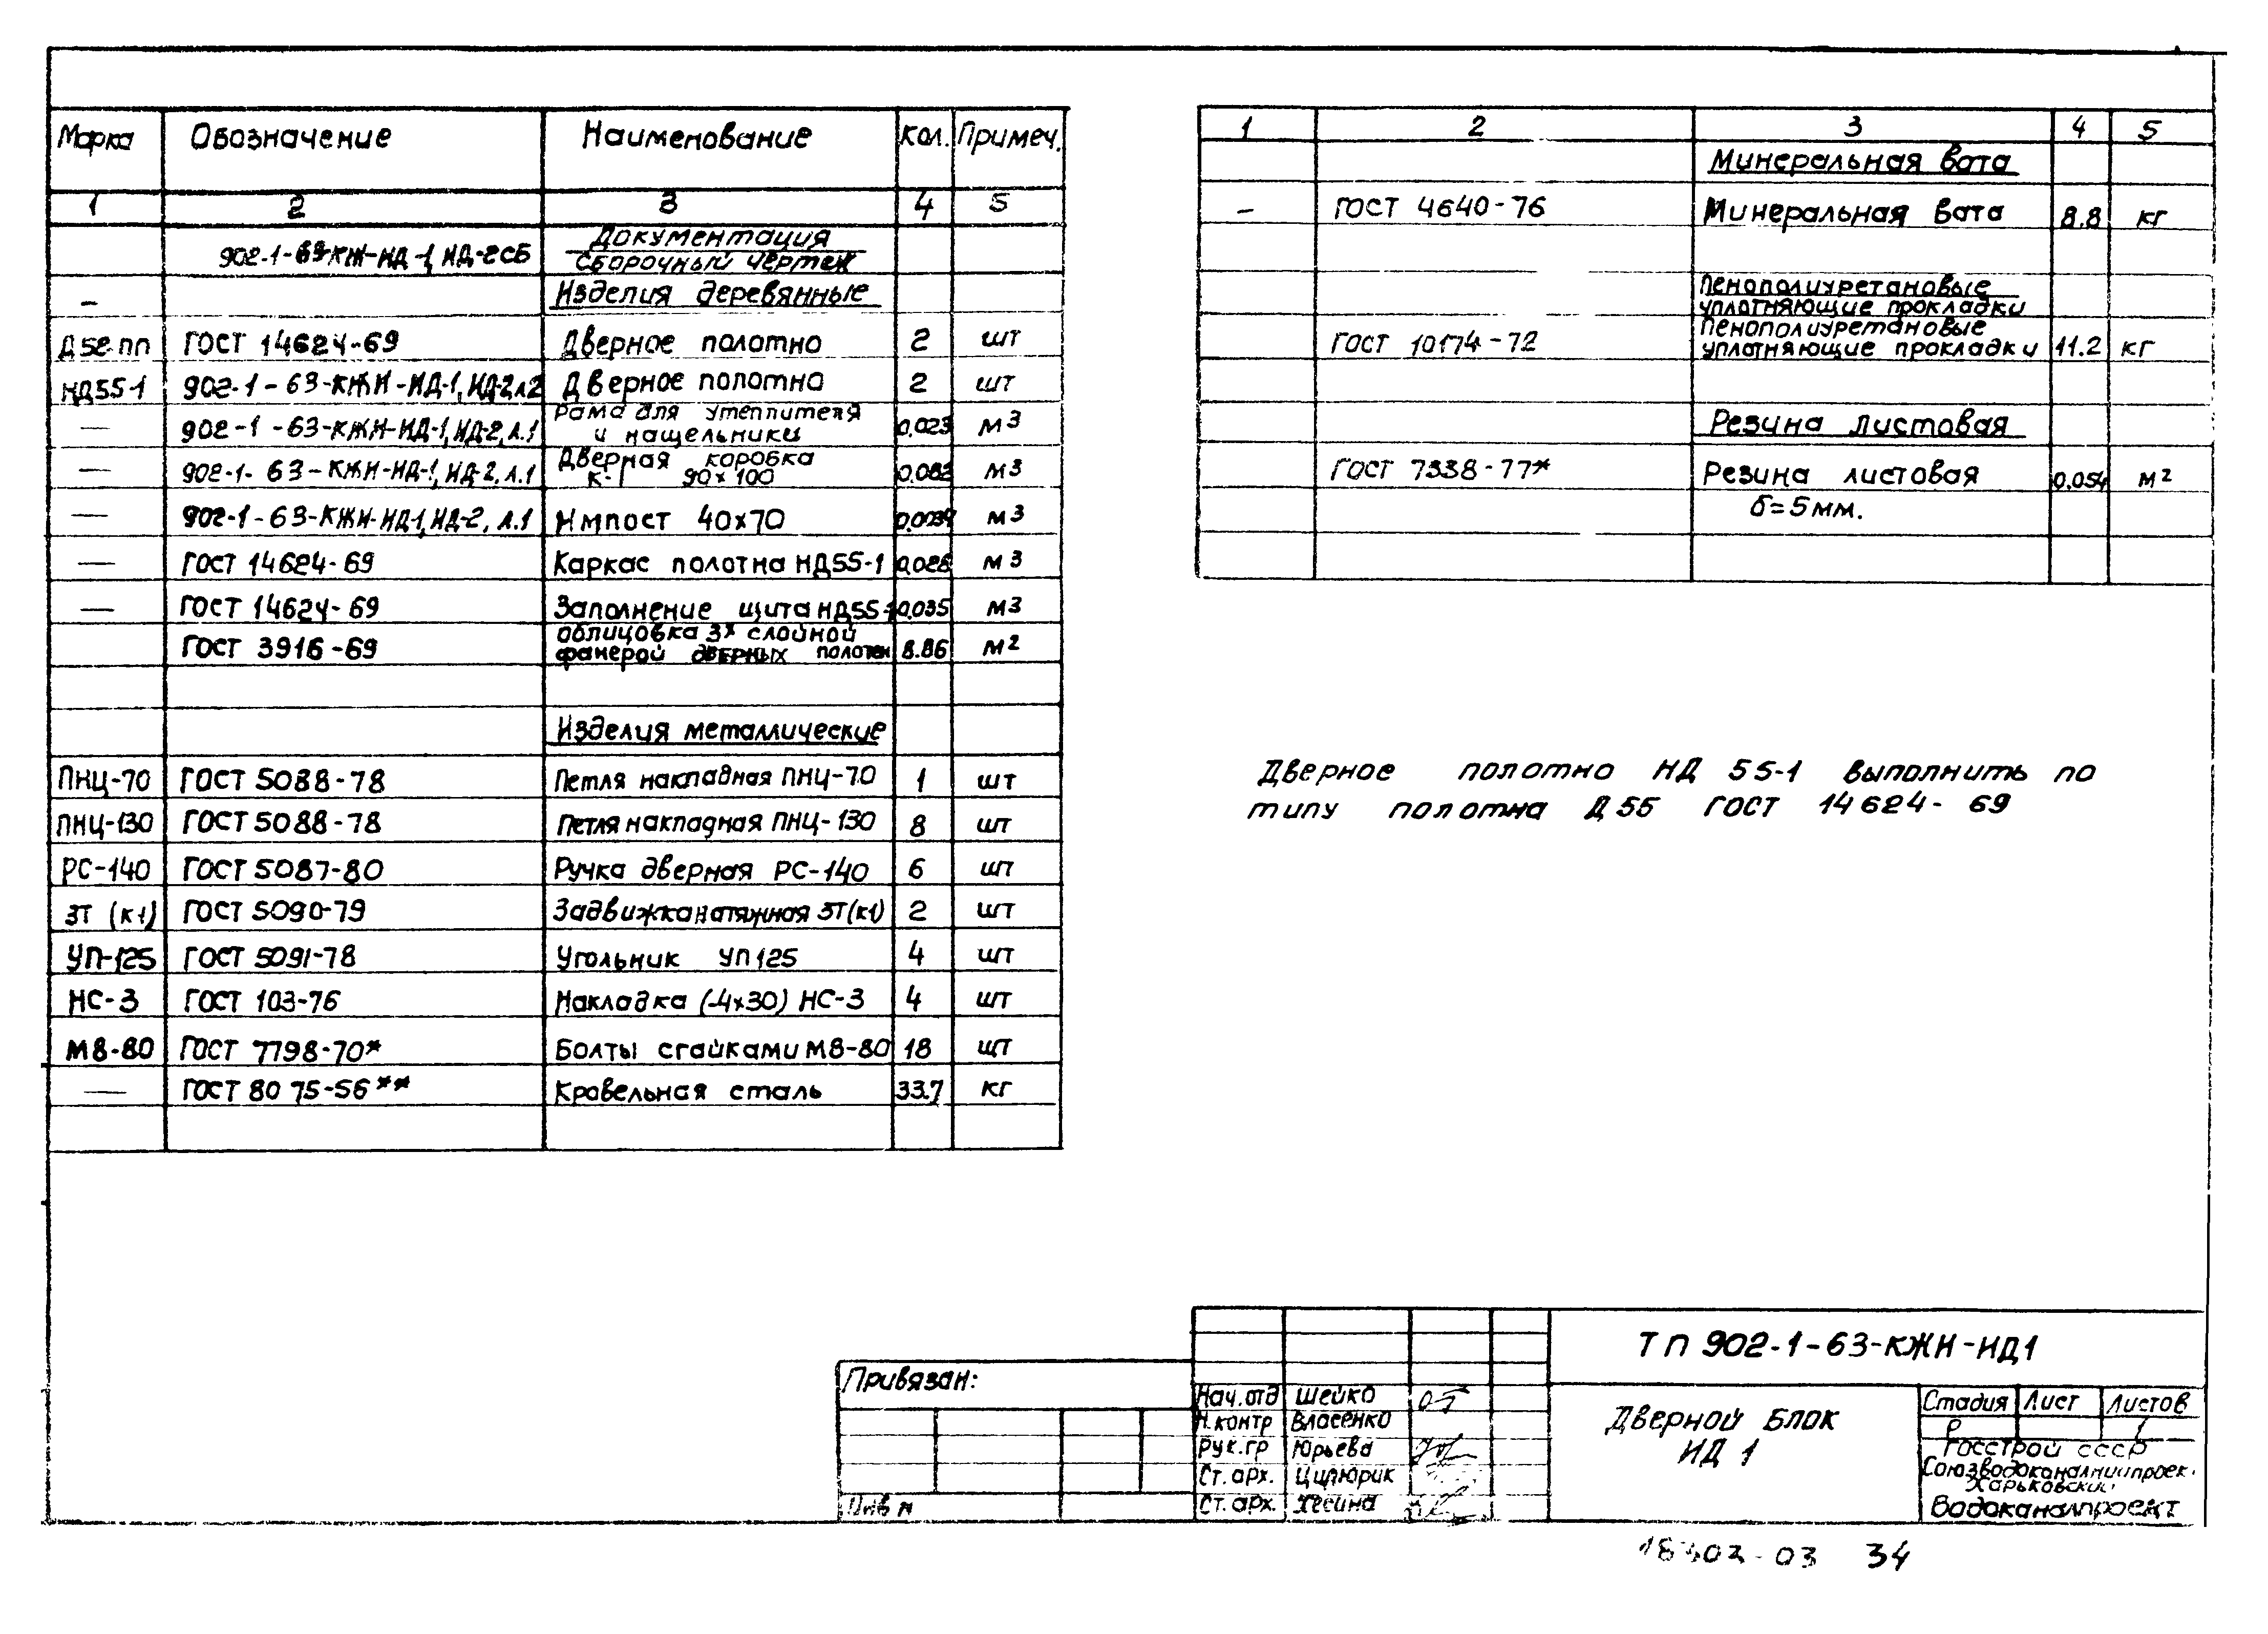 Марка Обозначение Наименование Кол. Примеч.
1 2 3 4 5
902-1-63-КЖИ-ИД-1, ИД-2СБ Документация
Сборочный чертеж
— Изделия деревянные
ГОСТ 14624-69 Дверное полотно 2 шт
НД55-1 902-1-63-КЖИ-ИД-1, ИД-2 л2 Дверное полотно 2 шт
— 902-1-63-КЖИ-ИД-1, ИД-2, л.1 Рама для утеплителя
и нащельники 0,023 м3
— 902-1-63-КЖИ-ИД-1, ИД-2, л.1 Дверная коробка
К-1 90х100 м3
— 902-1-63-КЖИ-ИД-1, ИД-2, л.1 Импост 40х70 м3
— ГОСТ 14624-69 Каркас полотна НД55-1 м3
— ГОСТ 14624-69 Заполнение щита НД55-1 0,035 м3
ГОСТ 3916-69 облицовка 3х слойной
фанерой дверных полотен 8.86 м2
Изделия металлические
ПНЦ-70 ГОСТ 5088-78 Петля накладная ПНЦ-70 1 шт
ПНЦ-130 ГОСТ 5088-78 Петля накладная ПНЦ-130 8 шт
РС-140 ГОСТ 5087-80 Ручка дверная РС-140 6 шт
ЗТ (к1) ГОСТ 5090-79 Задвижка натяжная ЗТ(к1) 2 шт
УП-125 ГОСТ 5091-78 Угольник УП125 4 шт
НС-3 ГОСТ 103-76 Накладка (-4х30) НС-3 4 шт
М8-80 ГОСТ 7798-70* Болты с гайками М8-80 18 шт
— ГОСТ 8075-56** Кровельная сталь 33.7 кг
1 2 3 4 5
Минеральная вата
— ГОСТ 4640-76 Минеральная вата 8.8 кг
Пенополиуретановые
уплотняющие прокладки
Пенополиуретановые
ГОСТ 10174-72 уплотняющие прокладки 11.2 кг
Резина листовая
ГОСТ 7338-77* Резина листовая 0,054 м2
б=5мм.
Дверное полотно НД 55-1 выполнить по
типу полотна Д 55 ГОСТ 14624-69
Привязан:
Инв №
ТП 902-1-63-КЖИ-ИД1
Нач.отд Шейко
Н.контр Власенко
Рук.гр Юрьева
Ст.арх. Цирюрик
Ст.арх.
Дверной блок
ИД 1
Стадия Лист Листов
Р 1
Госстрой СССР
Союзводоканалниипроект
Харьковский
Водоканалпроект
-03 34